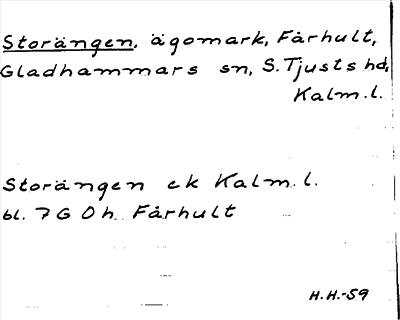 Storängen, ägomark, Fårhult,
Gladhammars sn, S. Tjusts hd,
Kalm. l.
Storängen ek Kalm. l.
bl. 7 G 0 h Fårhult
H.H.-59